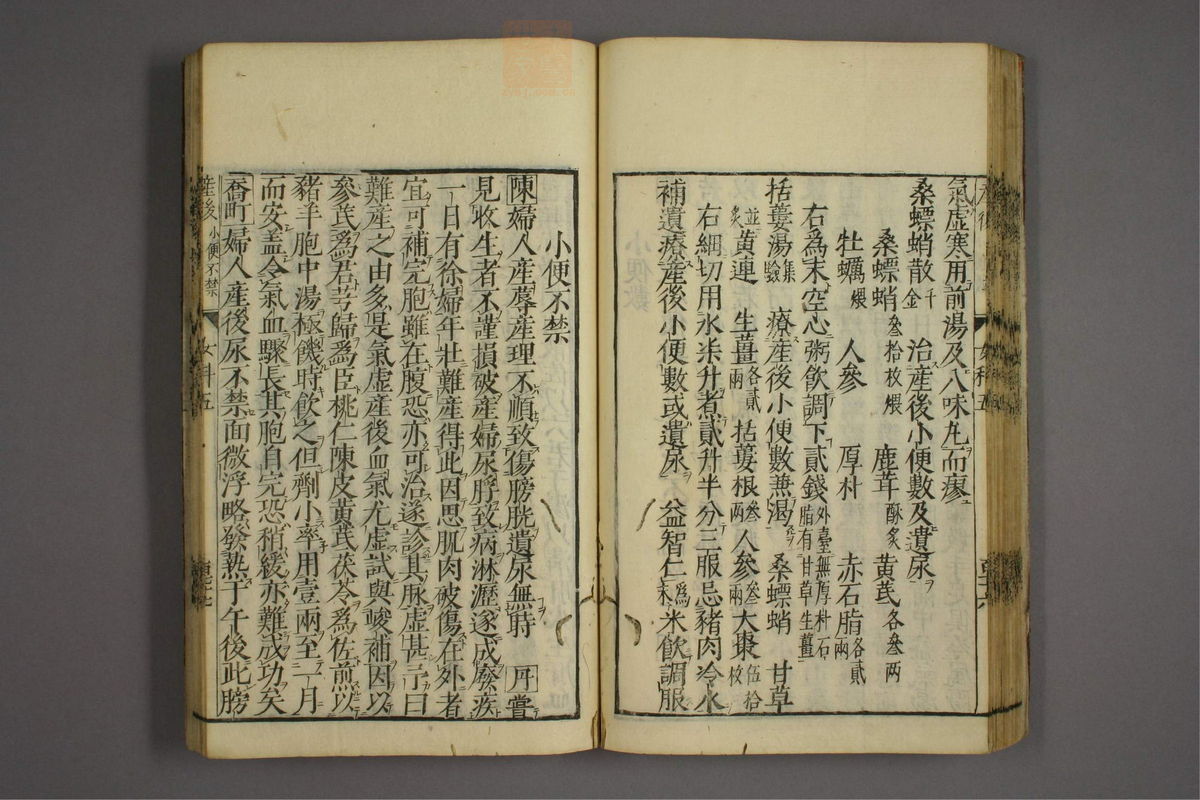 氣虛寒用前湯及八味丸而瘳
桑螵蛸散千金 治産後小便數及遺尿
桑螵蛸叁拾枚煨 鹿茸酥炙 黃芪各叁兩
牡蠣煨 人參 厚朴 赤石脂各貳兩
右爲末空心粥飲調下貳錢外臺無厚朴石脂有甘草生薑
括蔞湯集驗 療産後小便數兼渴 桑螵蛸 甘草
並炙黃連 生薑各貳兩 括蔞根叁兩 人參叁兩 大棗伍拾枚
右細切用水柒升煮貳升半分三服忌豬肉冷水
補遺療産後小便數或遺尿 益智仁爲末米飲調服
小便不禁
陳婦人産蓐産理不順致傷膀胱遺尿無時 丹嘗
見收生者不謹損破産婦尿脬致病淋瀝遂成廢疾
一日有徐婦年壯難産得此因思肌肉破傷在外者
宜可補完胞雖在腹恐亦可治遂診其脉虛甚予曰
難産之由多是氣虛産後血氣尤虛試與峻補因以
參芪爲君芎歸爲臣桃仁陳皮黃芪茯苓爲佐煎以
豬羊胞中湯極饑時飲之但劑小率用壹兩至一月
而安盖令氣血驟長其胞自完恐稍緩亦難成功矣
喬町婦人産後尿不禁面微浮略發熱于午後此膀
産後 小便不禁
女科五
女科五